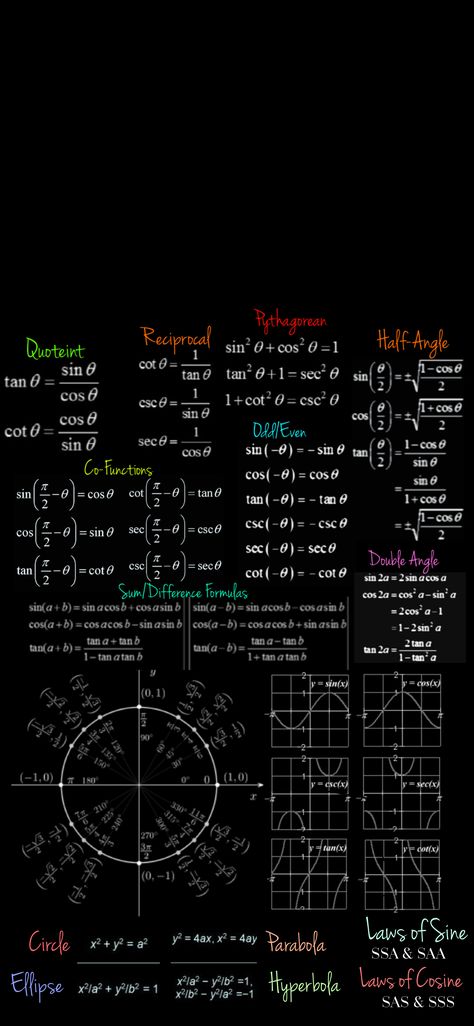 Pythagorean
sin² θ + cos² θ = 1
tan² θ + 1 = sec² θ
1 + cot² θ = csc² θ
Quoteint
tan θ = sin θ / cos θ
cot θ = cos θ / sin θ
Reciprocal
cot θ = 1 / tan θ
csc θ = 1 / sin θ
sec θ = 1 / cos θ
Half-Angle
sin(θ/2) = ±√((1 − cos θ)/2)
cos(θ/2) = ±√((1 + cos θ)/2)
tan(θ/2) = (1 − cos θ)/sin θ
= sin θ/(1 + cos θ)
Odd/Even
sin(−θ) = − sin θ
cos(−θ) = cos θ
tan(−θ) = − tan θ
csc(−θ) = − csc θ
sec(−θ) = sec θ
cot(−θ) = − cot θ
Co-Functions
sin(π/2 − θ) = cos θ cot(π/2 − θ) = tan θ
cos(π/2 − θ) = sin θ sec(π/2 − θ) = csc θ
tan(π/2 − θ) = cot θ csc(π/2 − θ) = sec θ
Double Angle
sin 2a = 2 sin a cos a
cos 2a = cos² a − sin² a
= 2cos² a − 1
= 1 − 2 sin² a
tan 2a = 2 tan a / (1 − tan² a)
Sum/Difference Formulas
sin(a + b) = sin a cos b + cos a sin b
cos(a + b) = cos a cos b − sin a sin b
tan(a + b) = (tan a + tan b)/(1 − tan a tan b)
sin(a − b) = sin a cos b − cos a sin b
cos(a − b) = cos a cos b + sin a sin b
tan(a − b) = (tan a − tan b)/(1 + tan a tan b)
y
(0, 1)
π/2
90°
(−1, 0) π 180° 0° 0 (1, 0)
x
270°
3π/2
(0, −1)
y = sin(x)
y = cos(x)
y = csc(x)
y = sec(x)
y = tan(x)
y = cot(x)
Circle x² + y² = a²
y² = 4ax, x² = 4ay Parabola
Laws of Sine
SSA & SAA
Ellipse x²/a² + y²/b² = 1
x²/a² − y²/b² = 1,
x²/b² − y²/a² = −1
Hyperbola
Laws of Cosine
SAS & SSS